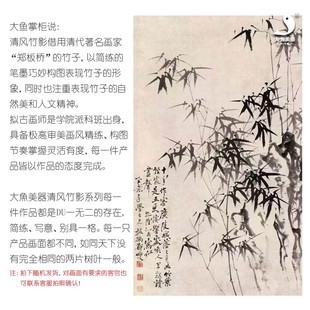 大鱼掌柜说:
清风竹影借用清代著名画家
“郑板桥”的竹子，以简练的
笔墨巧妙构图表现竹子的形
象，同时也注重表现竹子的自
然美和人文精神。
拟古画师是学院派科班出身，
具备极高审美画风精练、构图
节奏掌握灵活有度，每一件产
品皆以作品的态度完成。
大鱼美器清风竹影系列每一
件作品都是DU一无二的存在，
简练，写意，别具一格。每一
只产品画面都不同，如同天下没
有完全相同的两片树叶一般。
注: 拍下随机发货，对画面有要求的客官也
可联系客服拍照确认!